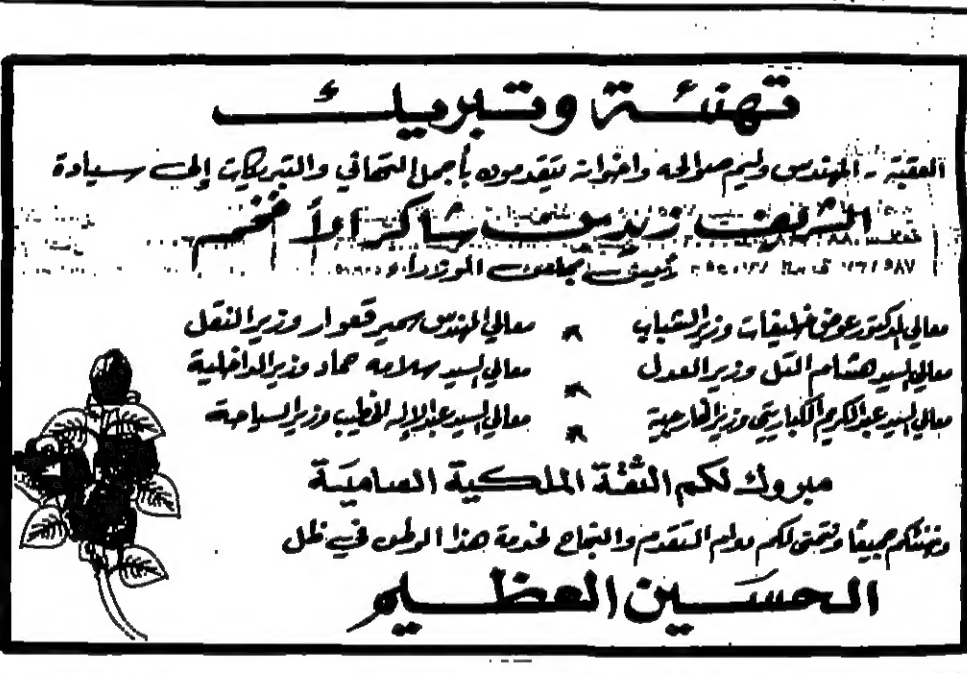 تهنئة وتبريك
العقبة - المهندس وليم صوالحه واخوانه يتقدمون بأجمل التهاني والتبريكات إلى سيادة
الشريف زيد بن شاكر الأفخم
رئيس مجلس الوزراء و
معالي الدكتور عوض خليفات وزير الشباب * معالي المهندس سمير قعوار وزير النقل
معالي السيد هشام التل وزير العدل * معالي السيد سلامه حماد وزير الداخلية
معالي السيد عبدالكريم الكباريتي وزير الخارجية * معالي السيد عبدالإله الخطيب وزير السياحة
مبروك لكم الثقة الملكية السامية
ونهنئكم جميعًا ونتمنى لكم دوام التقدم والنجاح لخدمة هذا الوطن في ظل
الحسين العظيم